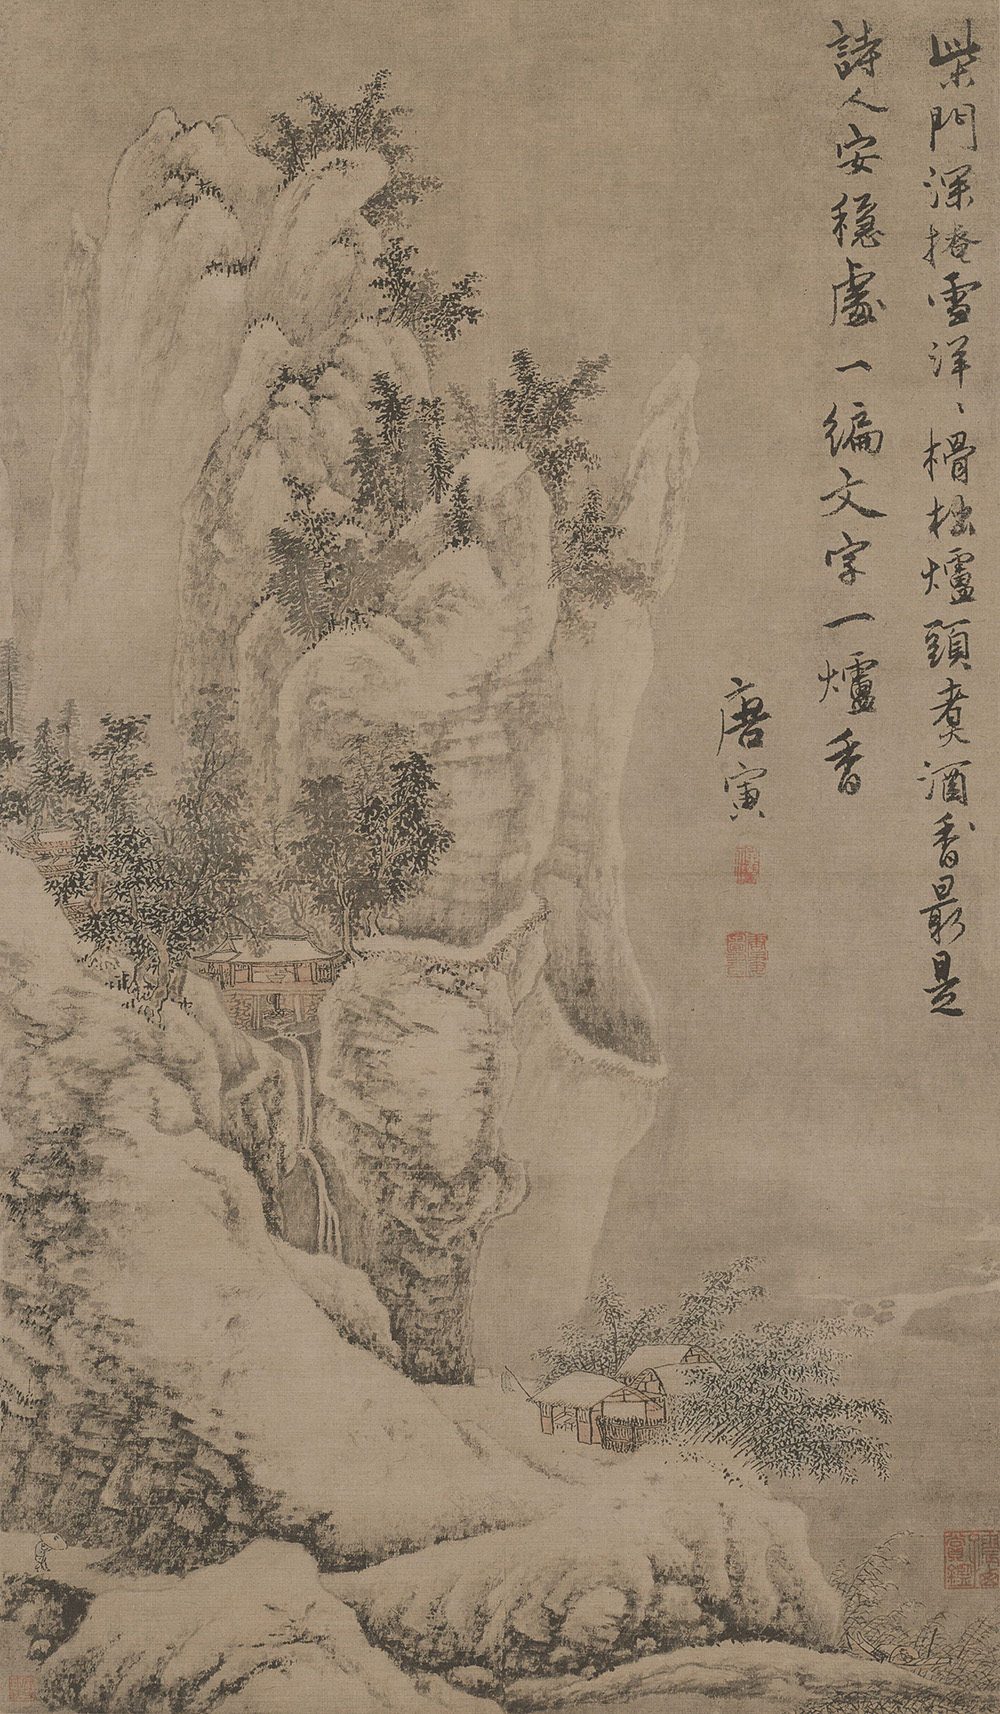 柴門深掩雪洋〻榾柮爐頭煮酒香最是
詩人安穩處一編文字一爐香
唐寅